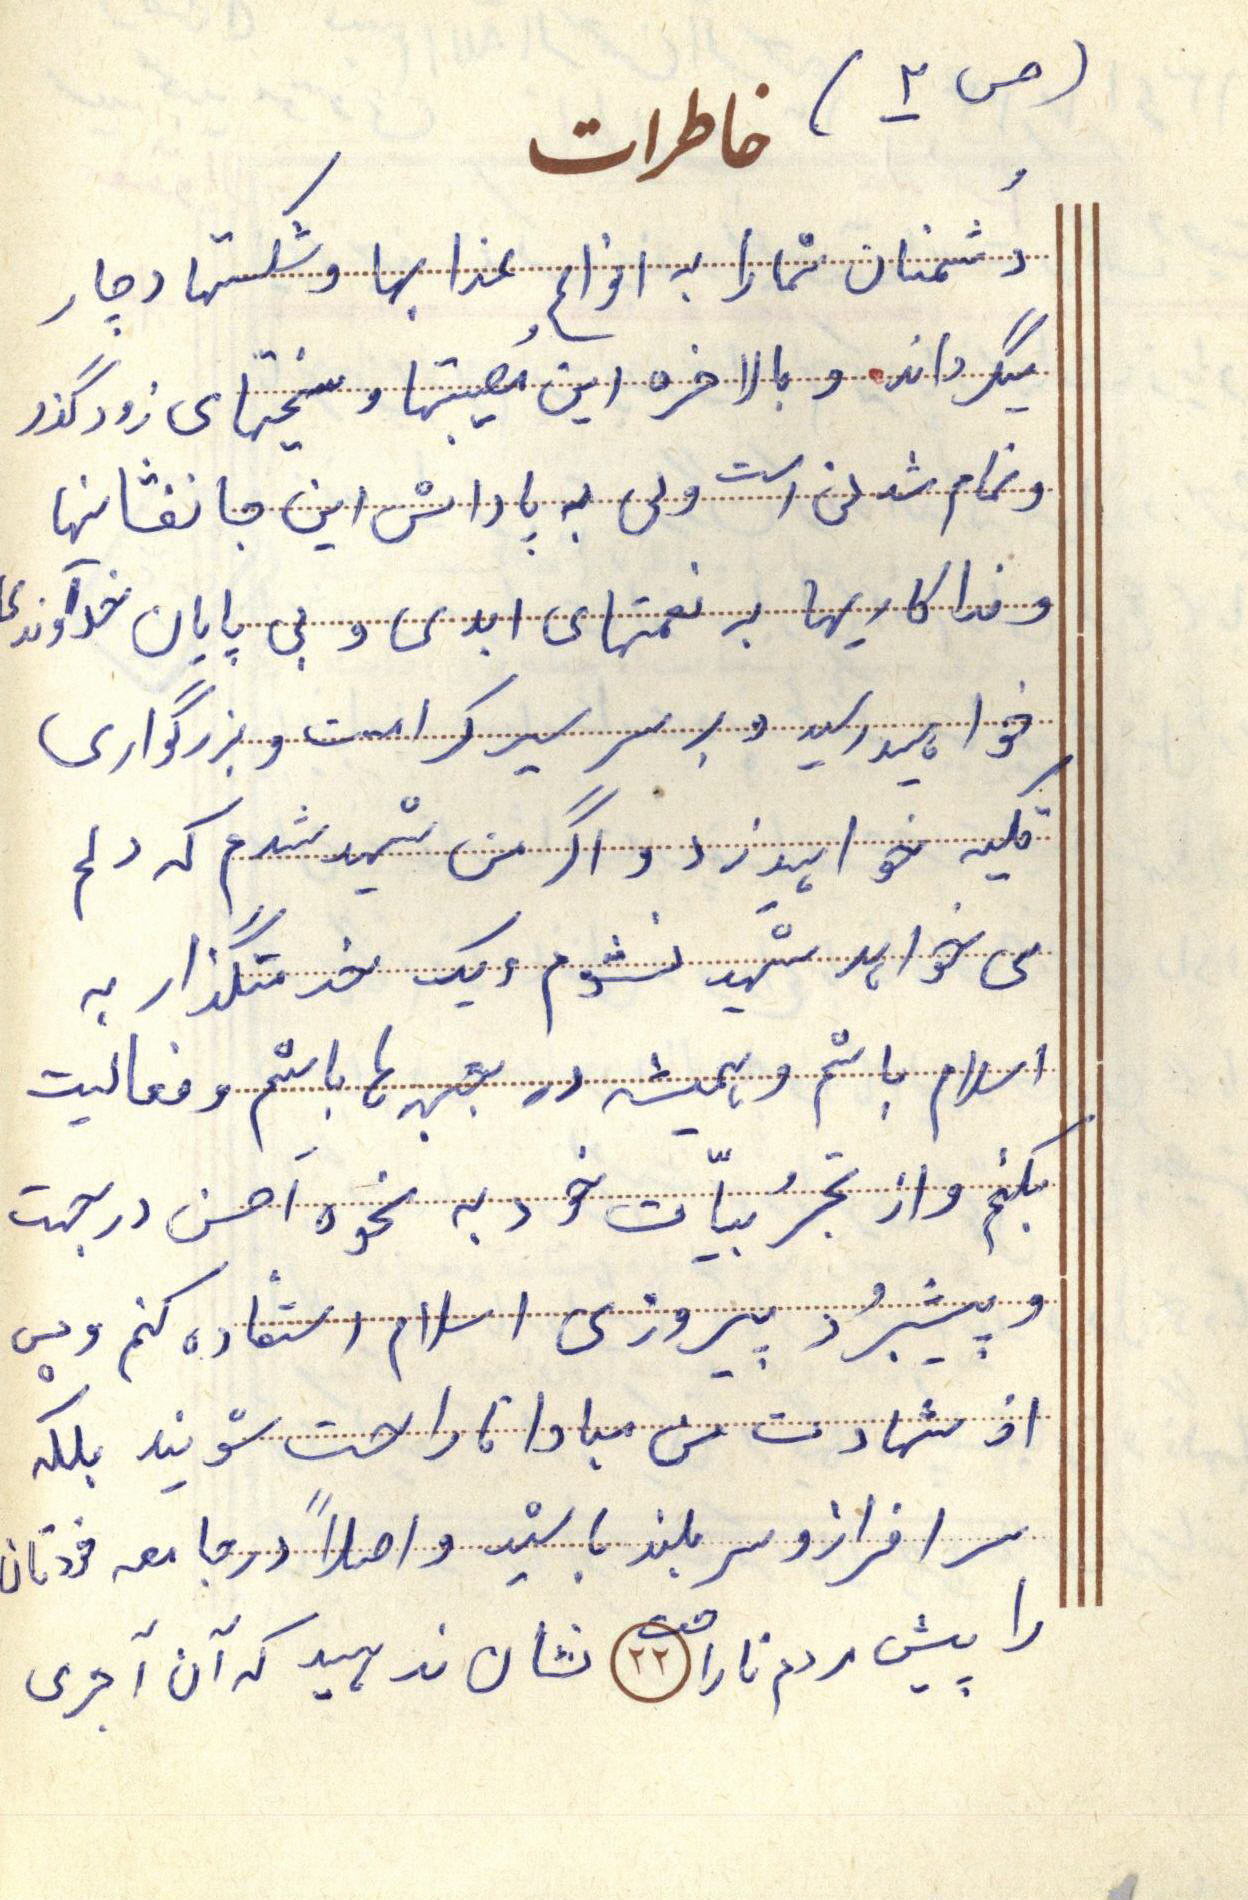 (ص ۲)
خاطرات
دُشمنان شما را به انواع عذابها و شکستها دچار
میگرداند و بالاخره این مُصیبتها و سختیهای زودگذر
و تمام شدنی است ولی به پاداش این جانفشانیها
و فداکاریها به نعمتهای ابدی و بی پایان خداوند
خواهید رسید و بر سریر کرامت و بزرگواری
تکیه خواهید زد و اگر من شهید شدم که دلم
می خواهد شهید نشوم و یک خدمتگذار به
اسلام باشم و همیشه در جبهه ها باشم و فعالیت
بکنم و از تجرُبیّات خود به نحوه اَحسن در جهت
و پیشبُرد پیروزی اسلام استفاده کنم و پس
از شهادت من مبادا ناراحت شوید بلکه
سرافراز و سربلند باشید و اصلاً در جامعه خودتان
را پیش مردم ناراحت نشان ندهید که آن آجری
۲۲